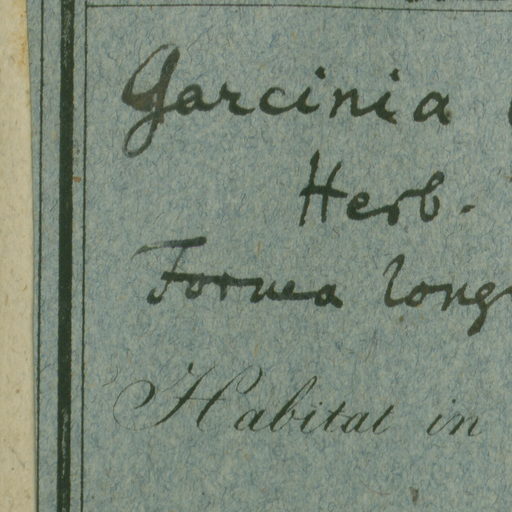 Garcinia
Herb.
Forma long
Habitat in